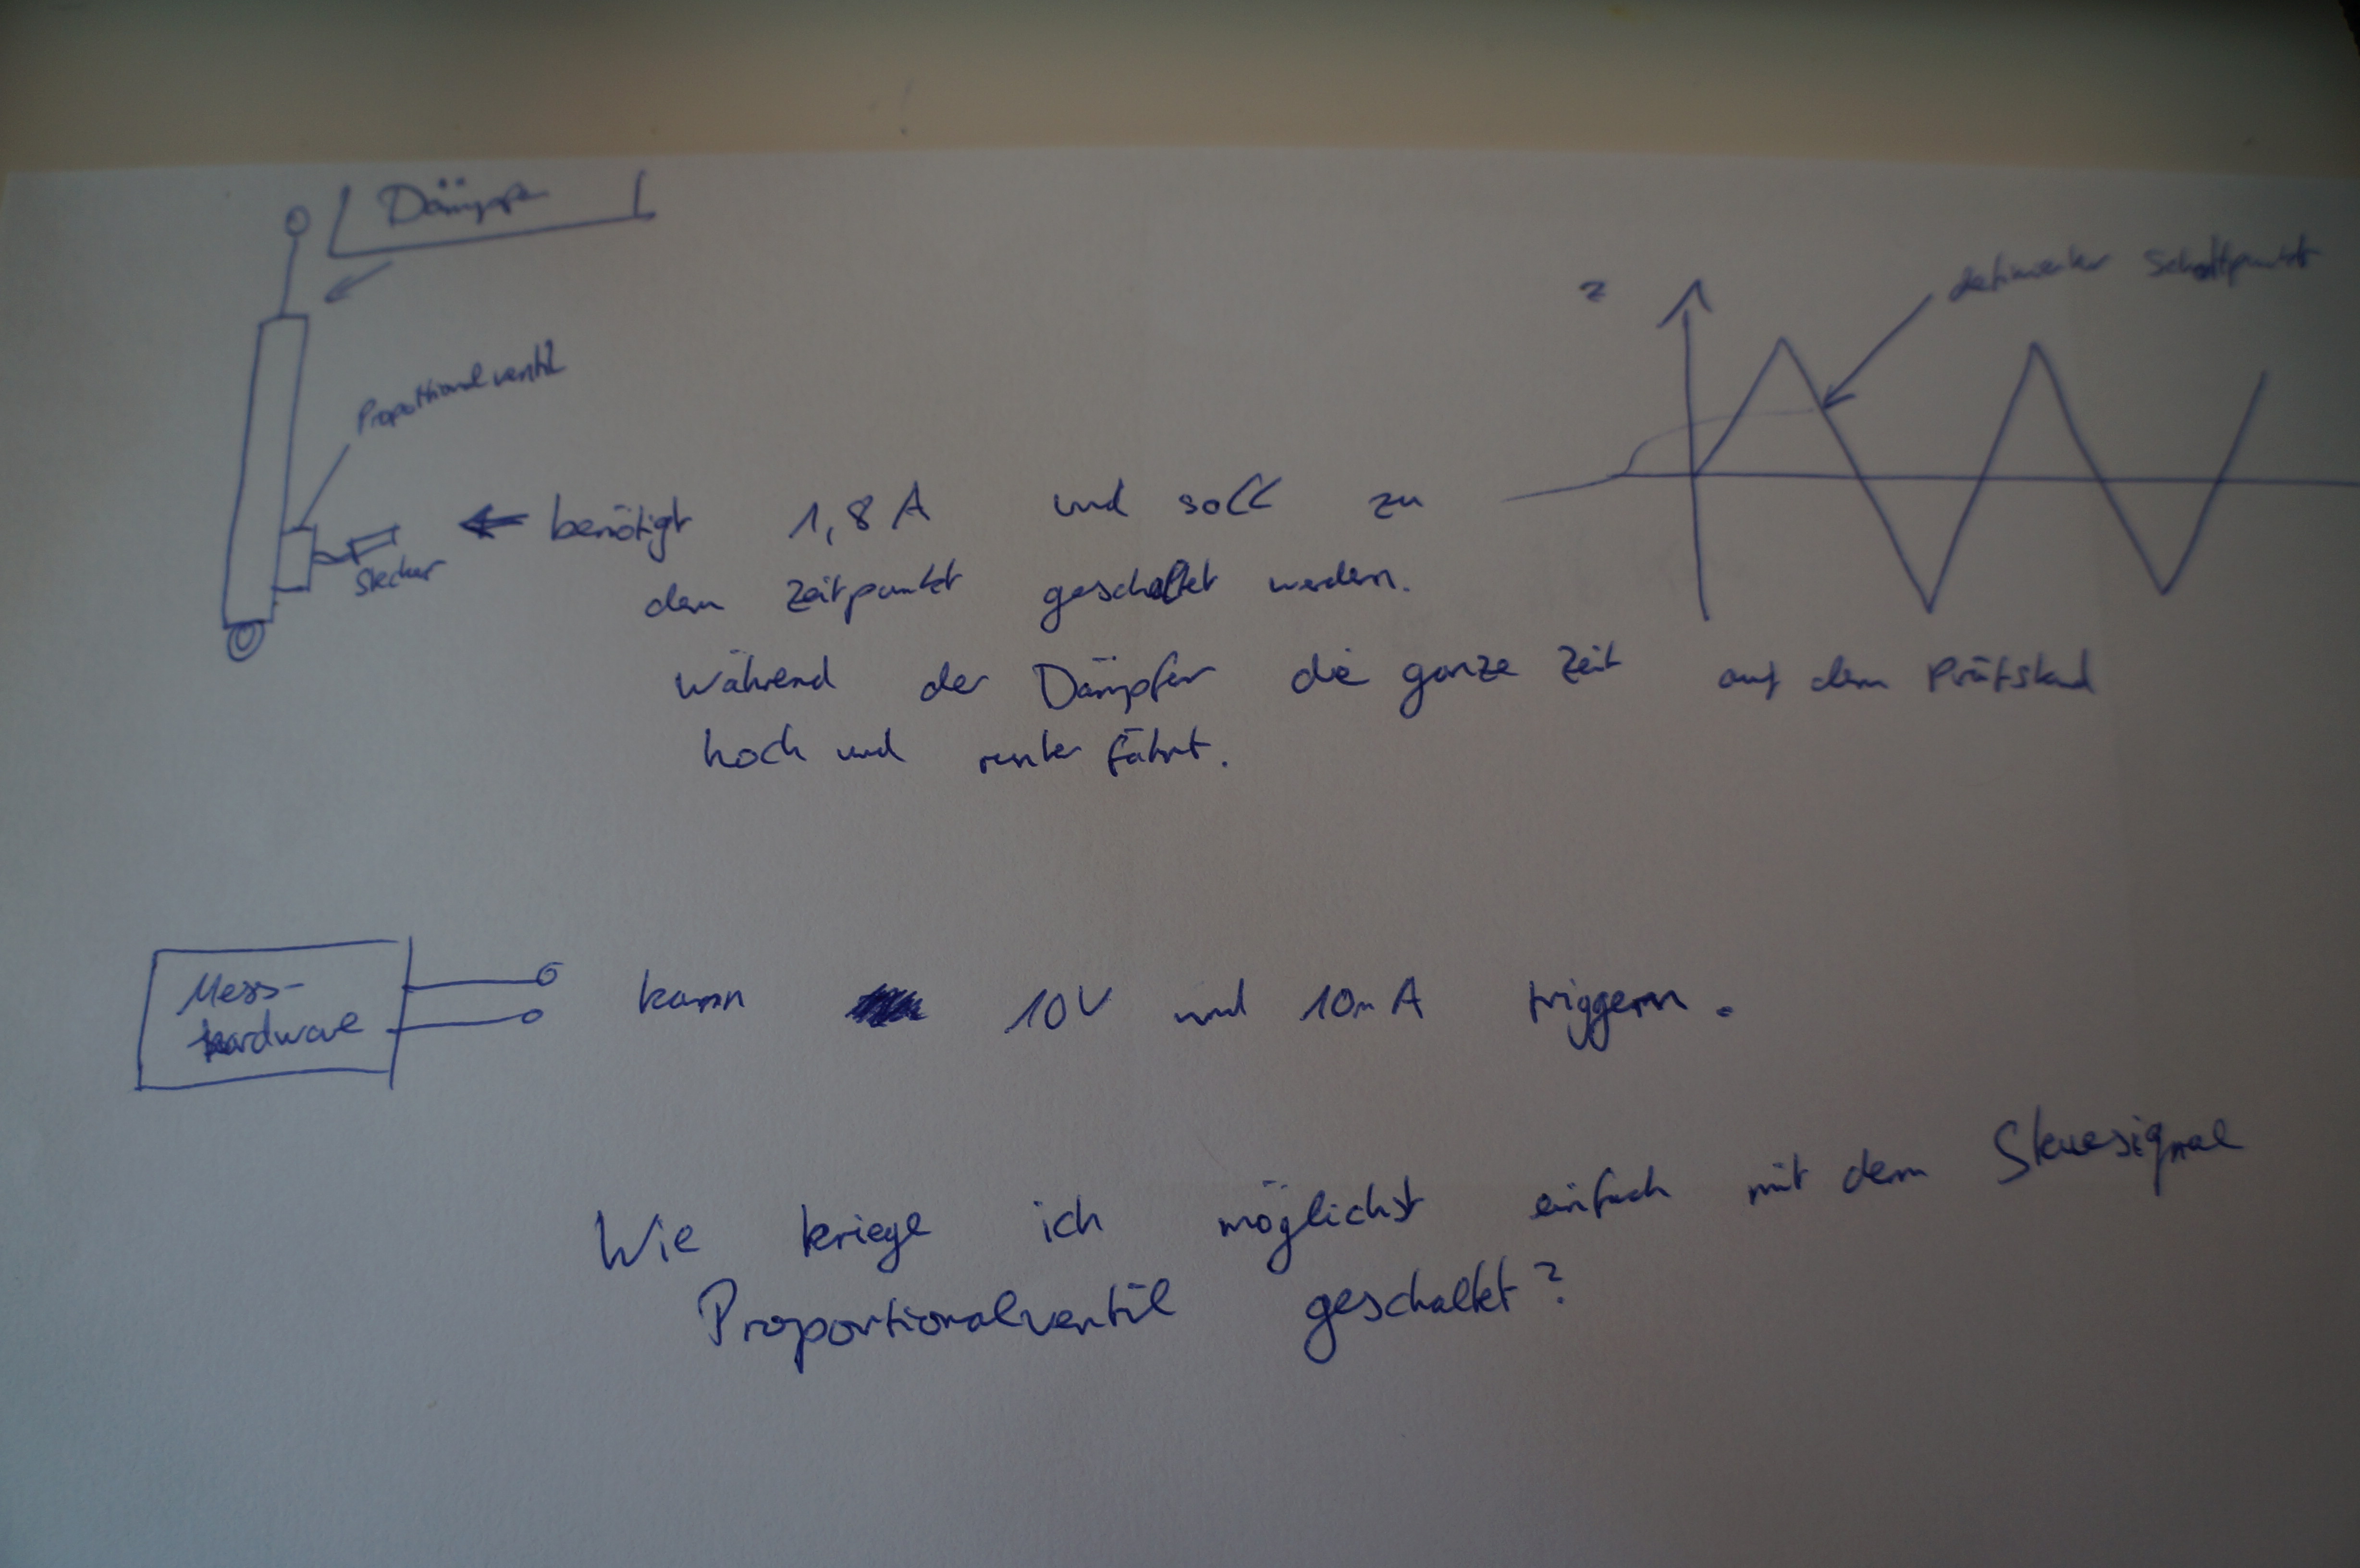 Dämpfer
z
definierter Schaltpunkt
Proportionalventil
Stecker
benötigt 1,8 A und soll zu
dem Zeitpunkt geschaltet werden.
Während der Dämpfer die ganze Zeit auf dem Prüfstand
hoch und runter fährt.
Mess-
hardware
kann 10V und 10mA triggern.
Wie kriege ich möglichst einfach mit dem Steuersignal
Proportionalventil geschaltet?